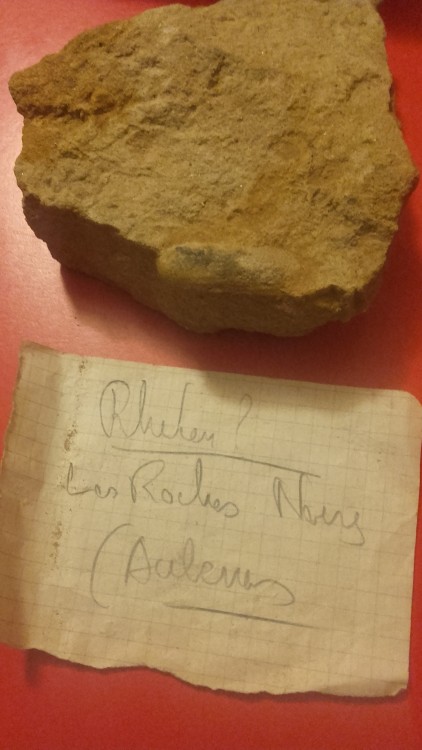 Rhetien ?
Les Roches Noires
(Aubenas